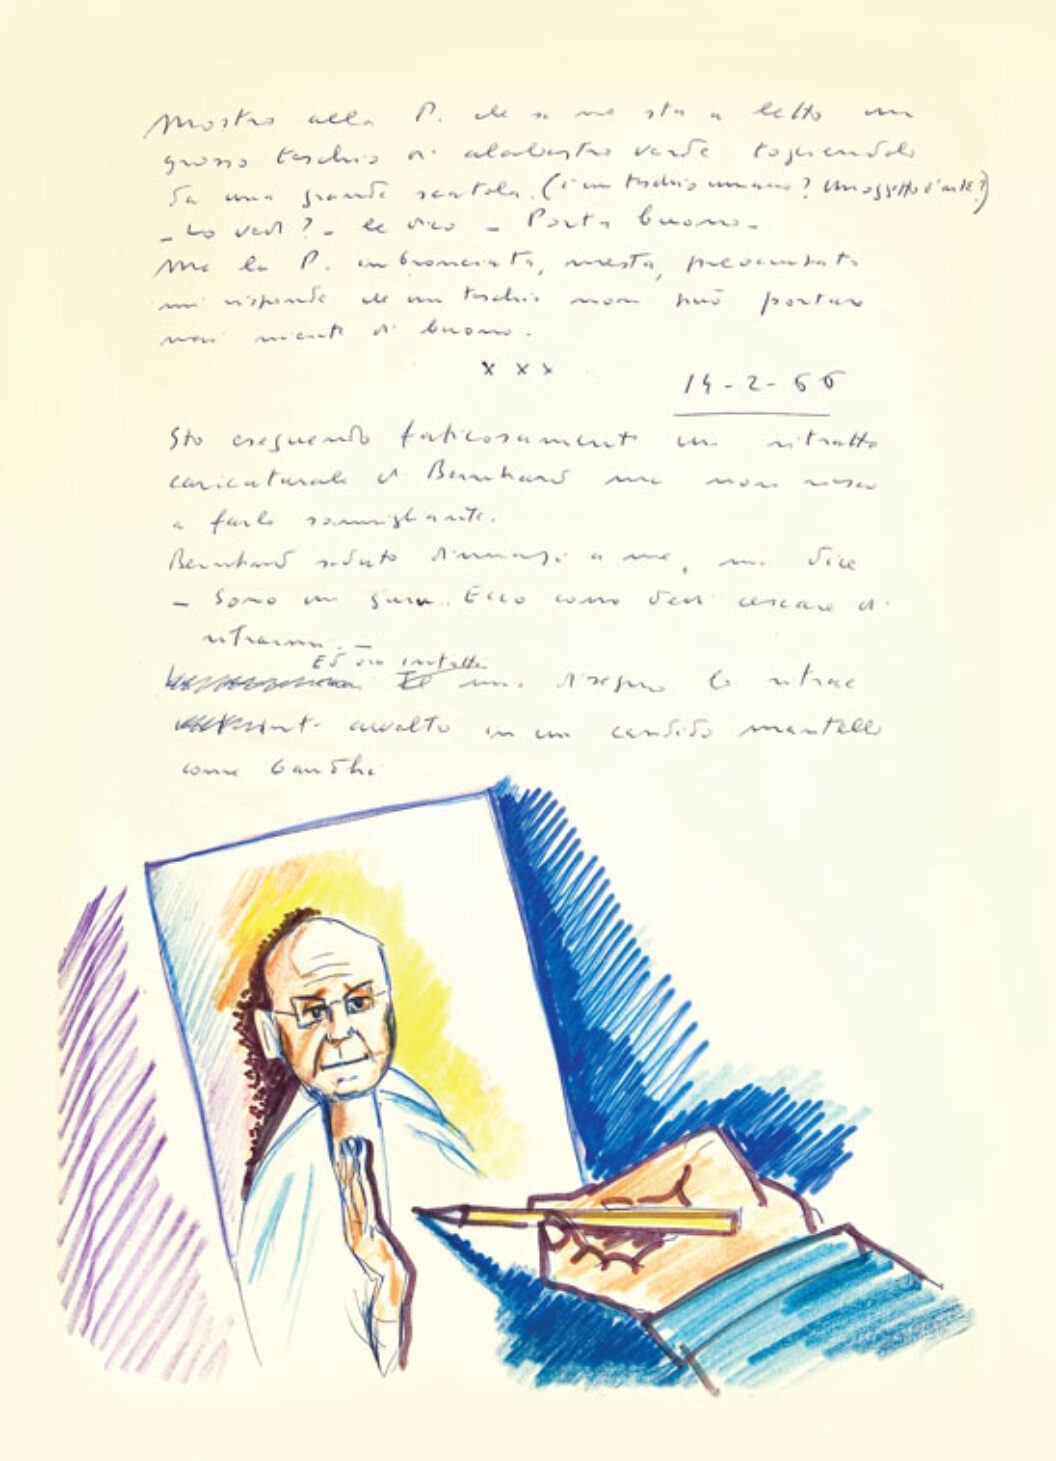 Mostro alla P. che se ne sta a letto un
grosso teschio di alabastro verde togliendolo
da una grande scatola. (è un teschio umano? Un oggetto d'arte?)
- Lo vedi? - le dico - Porta buono -
Ma la P. imbronciata, mesta, preoccupata
mi risponde che un teschio non può portare
mai niente di buono.
x x x
14-2-66
Sto eseguendo faticosamente un ritratto
caricaturale di Bernhard ma non riesco
a farlo somigliante.
Bernhard seduto dinanzi a me, mi dice
- Sono un guru.. Ecco come devi cercare di
ritrarmi. -
Ed ora infatti
mio disegno lo ritrae
avvolto in un candido mantello
come Gandhi